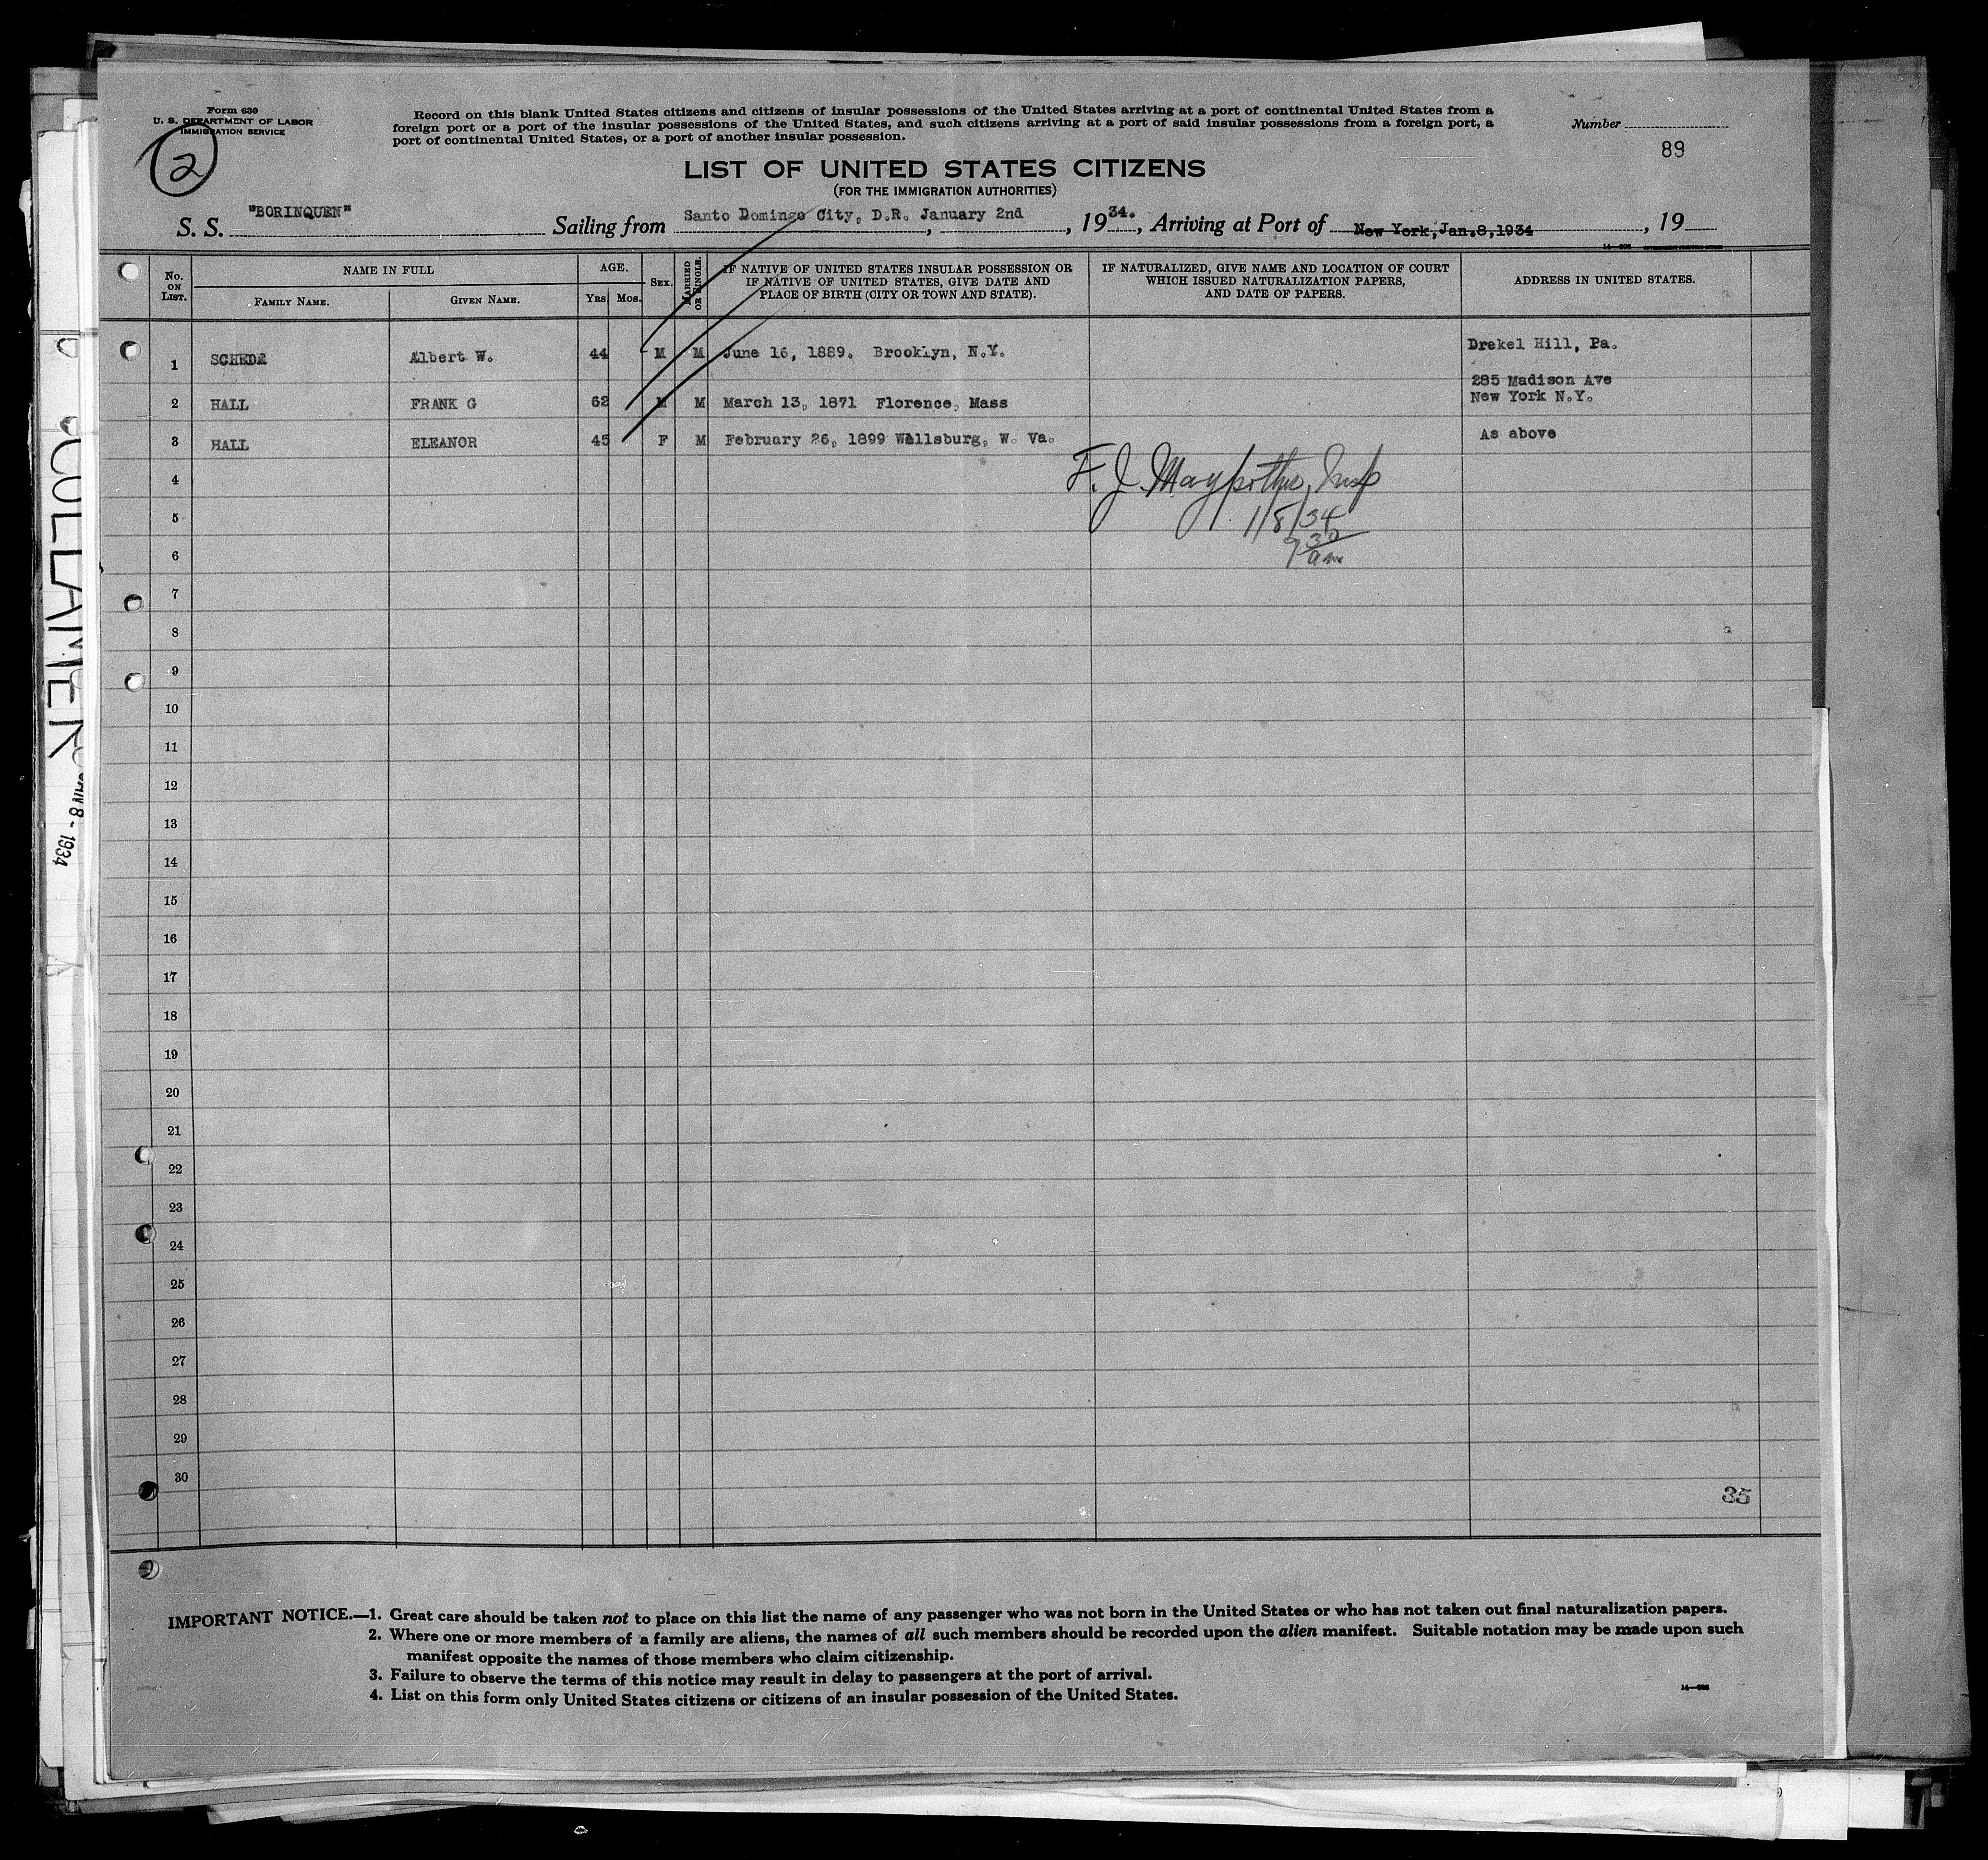 Form 630
U. S. DEPARTMENT OF LABOR
IMMIGRATION SERVICE
2
Record on this blank United States citizens and citizens of insular possessions of the United States arriving at a port of continental United States from a
foreign port or a port of the insular possessions of the United States, and such citizens arriving at a port of said insular possessions from a foreign port, a
port of continental United States, or a port of another insular possession.
Number
89
LIST OF UNITED STATES CITIZENS
(FOR THE IMMIGRATION AUTHORITIES)
S. S. "BORINQUEN" Sailing from Santo Domingo City, D.R. January 2nd, 1934., Arriving at Port of New York, Jan.8,1934, 19
No. ON LIST.
NAME IN FULL
FAMILY NAME. GIVEN NAME.
AGE.
Yrs. Mos.
SEX.
MARRIED OR SINGLE.
IF NATIVE OF UNITED STATES INSULAR POSSESSION OR
IF NATIVE OF UNITED STATES, GIVE DATE AND
PLACE OF BIRTH (CITY OR TOWN AND STATE).
IF NATURALIZED, GIVE NAME AND LOCATION OF COURT
WHICH ISSUED NATURALIZATION PAPERS,
AND DATE OF PAPERS.
ADDRESS IN UNITED STATES.
1 Albert W. 44 M M June 16, 1889. Brooklyn, N.Y. Drekel Hill, Pa.
285 Madison Ave
2 HALL FRANK G 62 M M March 13, 1871 Florence, Mass New York N.Y.
3 HALL ELEANOR 45 F M February 26, 1899 Wellsburg, W. Va. As above
4 F. J.
5 1/8/34
6 9 30 am
7
8
9
10
11
12
13
14
15
16
17
18
19
20
21
22
23
24
25
26
27
28
29
30
35
IMPORTANT NOTICE.—1. Great care should be taken not to place on this list the name of any passenger who was not born in the United States or who has not taken out final naturalization papers.
2. Where one or more members of a family are aliens, the names of all such members should be recorded upon the alien manifest. Suitable notation may be made upon such
manifest opposite the names of those members who claim citizenship.
3. Failure to observe the terms of this notice may result in delay to passengers at the port of arrival.
4. List on this form only United States citizens or citizens of an insular possession of the United States.
COLLAMER
JAN 8 - 1934